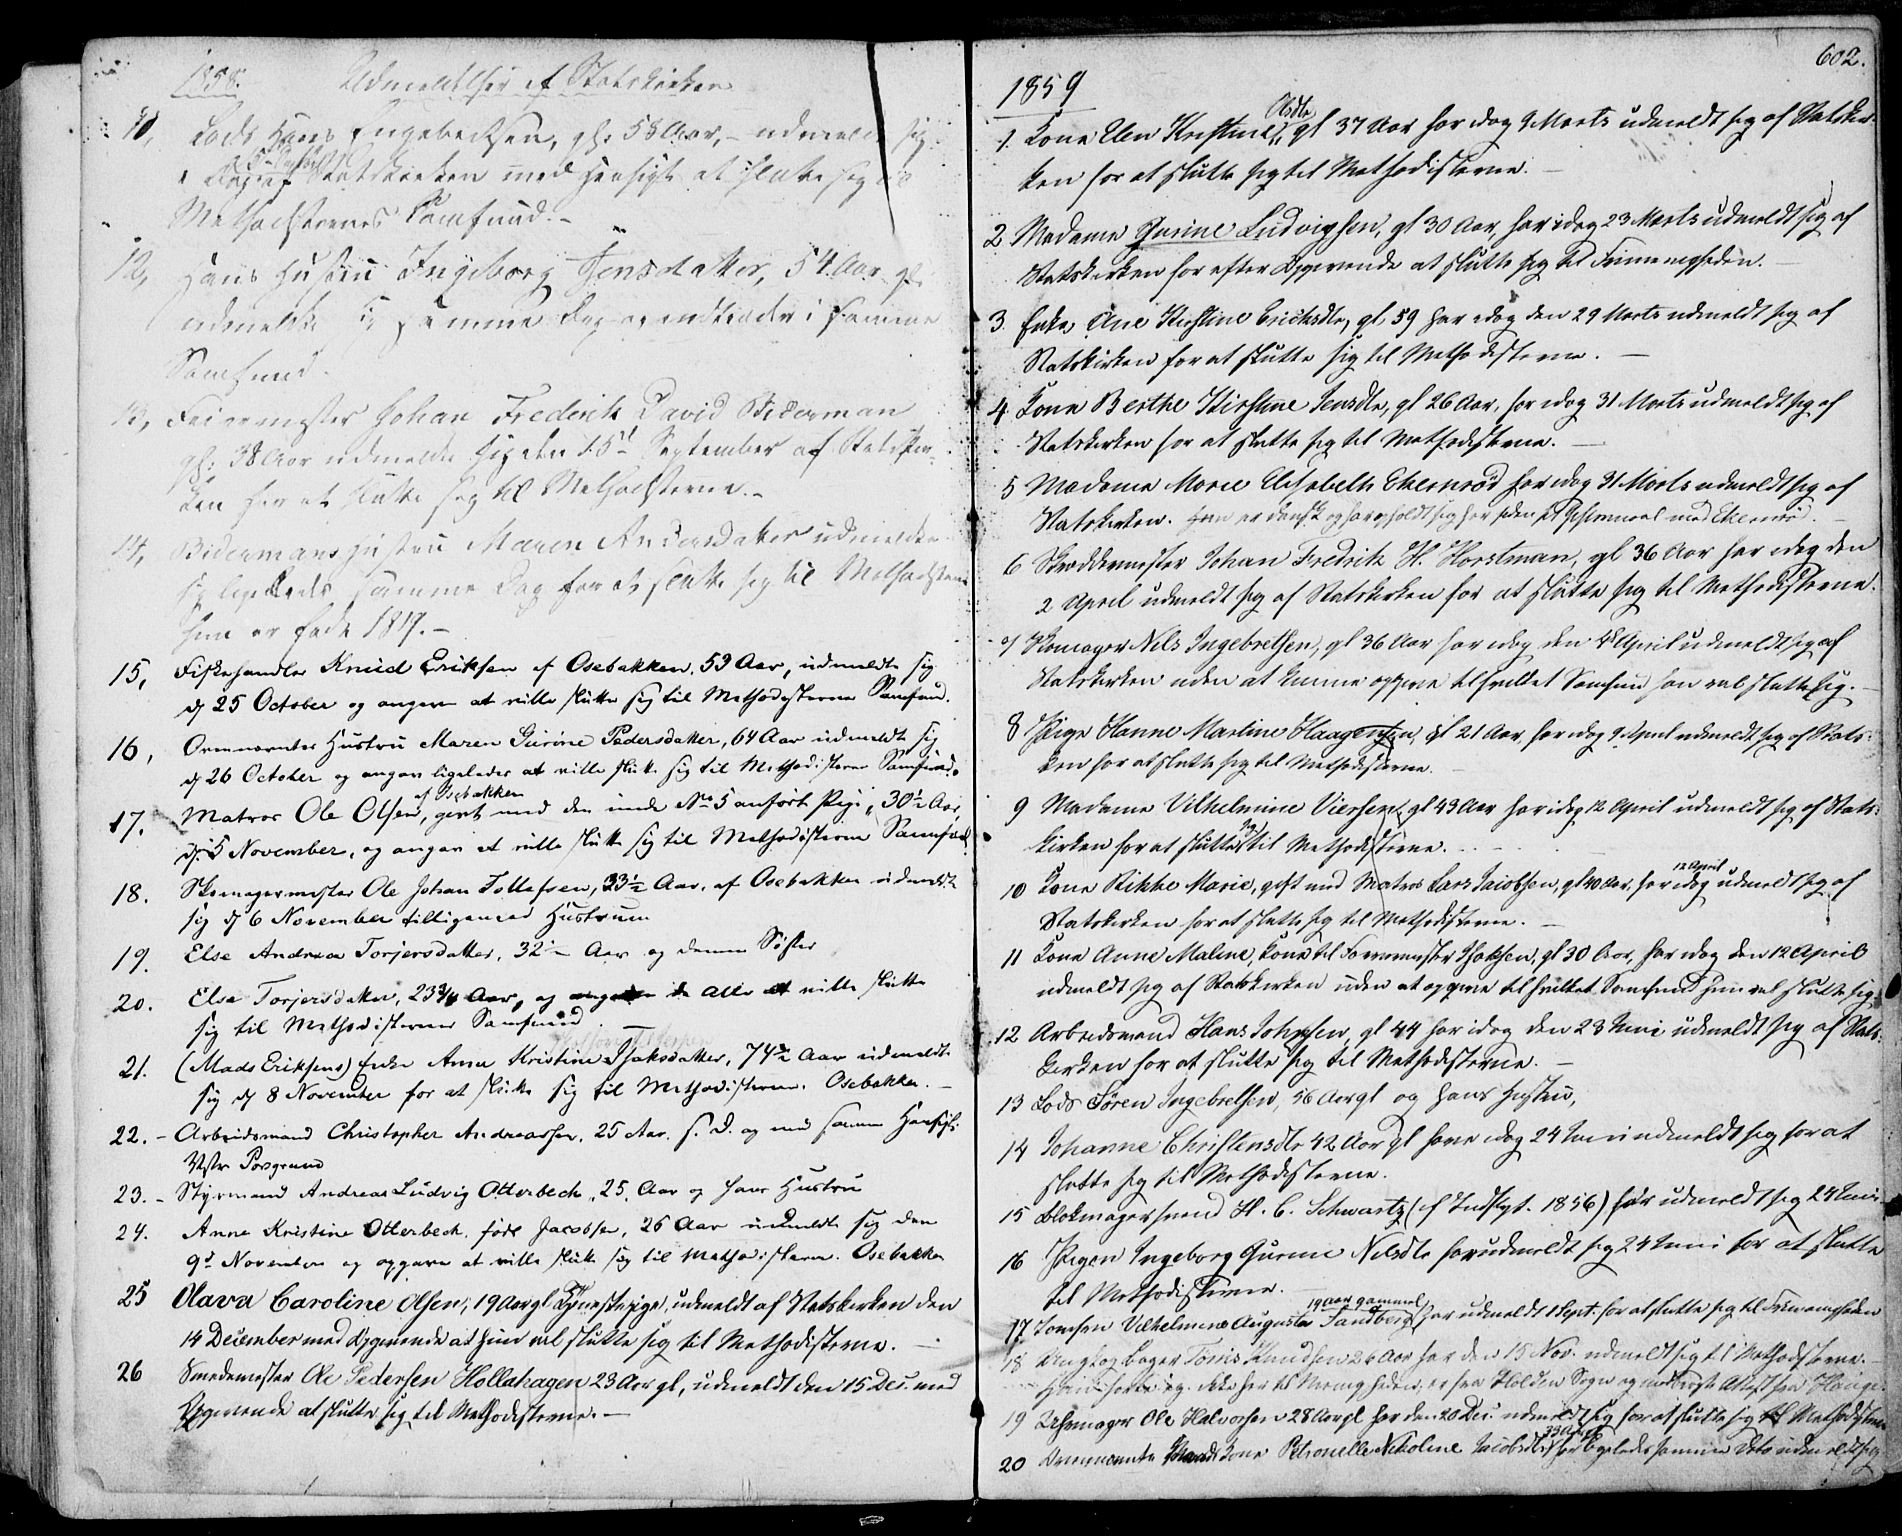 1858. Udmeldelser af Statskirken
11, Lods Hans Engebretsen, gl. 58 Aar, udmeldte sig
Dag af Statskirken med Hensigt at slutte sig til
Methodisternes Samfund.-
12, Hans Hustru Ingeborg Jensdatter, 54 Aar gl.
udmeldte sig samme Dag og indtræder i samme
Samfund.
13, Feiermester Johan Frederik David Biderman
gl. 38 Aar udmeldte sig den 15d September af Statskir-
ken for at slutte sig til Methodisterne.-
14, Bidermans Hustru Maren Andersdatter udmeldte
sig ligeledes samme Dag for at slutte sig til Methodisterne
hun er født 1819.-
15, Fiskehandler Knud Eriksen af Osebakken, 53 Aar, udmeldte sig
d 25 October og angav at ville slutte sig til Methodisternes Samfund.
16, Ovennævntes Hustru Maren Gurine Pedersdatter, 64 Aar udmeldte sig
d 26 October og angav ligeledes at ville slutte sig til Methodisternes Samfund.
af Osebakken
17. Matros Ole Olsen, gift med den under No 5 anførte Pige, 30½ Aar,
d. 5 November, og angav at ville slutte sig til Methodisternes Samfund.
18. Skomagermester Ole Johan Tollefsen, 33½ Aar, af Osebakken udmeldte
sig d 6 November tilligemed Hustruen
19. Else Andrea Torjersdatter, 32½ Aar og dennes Søster
20. Else Torjersdatter, 23¾ Aar, og alle at ville slutte
sig til Methodisternes Samfund.
21. (Mads Eriksens) Enke Anne Kristine Isaksdatter, 74½ Aar udmeldte
sig d 8 November for at slutte sig til Methodisterne. Osebakken.-
22.- Arbeidsmand Christopher Andreassen, 25 Aar. s. D. og med samme Hensigt.
Vestr Porsgrund
23.- Styrmand Andreas Ludvig Otterbech, 25 Aar og hans Hustru
24. Anne Kristine Otterbech, født Jacobsen, 26 Aar udmeldte sig den
9d November og opgave at ville slutte sig til Methodisterne. Osebakken
25 Olava Caroline Olsen, 19 Aar gl Tjenestepige, udmeldt af Statskirken den
14 December med Opgivende at hun vil slutte sig til Methodisterne.
26 Smedemester Ole Pedersen Hollahagen 23 Aar gl, udmeldt den 15 Dec. med
Opgivende at slutte sig til Methodisterne.-
602.
1859
Olsdtr
1. Kone Elen Kirstine, gl 37 Aar har idag 9 Marts udmeldt sig af Statskir-
ken for at slutte sig til Methodisterne.
2 Madame Gurine Ludvigsen, gl 30 Aar, har idag 23 Marts udmeldt sig af
Statskirken for efter Opgivende at slutte sig til Frimenigheden.
3. Enke Ane Kirstine Ericksdtr, gl 59 har idag den 29 Marts udmeldt sig af
Statskirken for at slutte sig til Methodisterne.
4 Kone Berthe Kirstine Jensdtr, gl 26 Aar, har idag 31 Marts udmeldt sig af
Statskirken for at slutte sig til Methodisterne.
5 Madame Marie Elisabeth Ekernrød har idag 31 Marts udmeldt sig af
Statskirken. Hun er dansk og har opholdt sig her siden sit Giftermaal med Ekernrød.
6 Skræddermester Johan Fredrik H. Horstman, gl 36 Aar har idag den
2 April udmeldt sig af Statskirken for at slutte sig til Methodisterne.
7 Skomager Nils Ingebretsen, gl 36 Aar har idag den 4de April udmeldt sig af
Statskirken uden at kunne opgive til hvilket Samfund han vil slutte sig.
8 Pige Hanne Martine Haagensen, gl 21 Aar, har idag 9 April udmeldt sig af Statskir-
ken for at slutte sig til Methodisterne.
9 Madame Vilhelmine Viersen, gl 49 Aar har idag 12 April udmeldt sig af Stats-
kirken for at slutte sig til Methodisterne.
12 April
10 Kone Rikke Marie, gift med Matros Lars Jacobsen, gl 40 Aar, har idag udmeldt sig af
Statskirken for at slutte sig til Methodisterne.
11 Kone Anne Maline, Kone til Farvemester Isaksen, gl 30 Aar, har idag den 12 April
udmeldt sig af Statskirken uden at opgive til hvilket Samfund hun vil slutte sig.
12 Arbeidsmand Hans Johnsen, gl 44 har idag den 23 Juni udmeldt sig af Stats-
kirken for at slutte sig til Methodisterne.
13 Lods Søren Ingebretsen, 56 Aar gl og hans Hustru,
14 Johanne Christensdtr 42 Aar gl have idag 24 Juni udmeldt sig for at
slutte sig til Methodisterne.
15 Blokmagersvend H. C. Schwartz (cf Indflyt. 1856) har udmeldt sig 24 Juni
16 Pigen Ingeborg Gurine Nilsdtr har udmeldt sig 24 Juni for at slutte
til Methodisterne.
19 Aar gammel
17 Jomfru Vilhelmine Augusta Sandberg har udmeldt 1 Sept. for at slutte sig til Frimenigheden
18 Tønnes Knudsen 26 Aar har den 15 Nov. udmeldt sig til Methodisterne.
Han hører eg. ikke her til Menigheden, er fra Holden Sogn
19 Uhrmager Ole Halvorsen 28 Aar gl har den 20 Dec udmeldt sig for at slutte sig til Methodisterne
20 Ovennævntes Kone Petronelle Nikoline Jacobsdtr har ligeledes samme Dato udmeldt sig